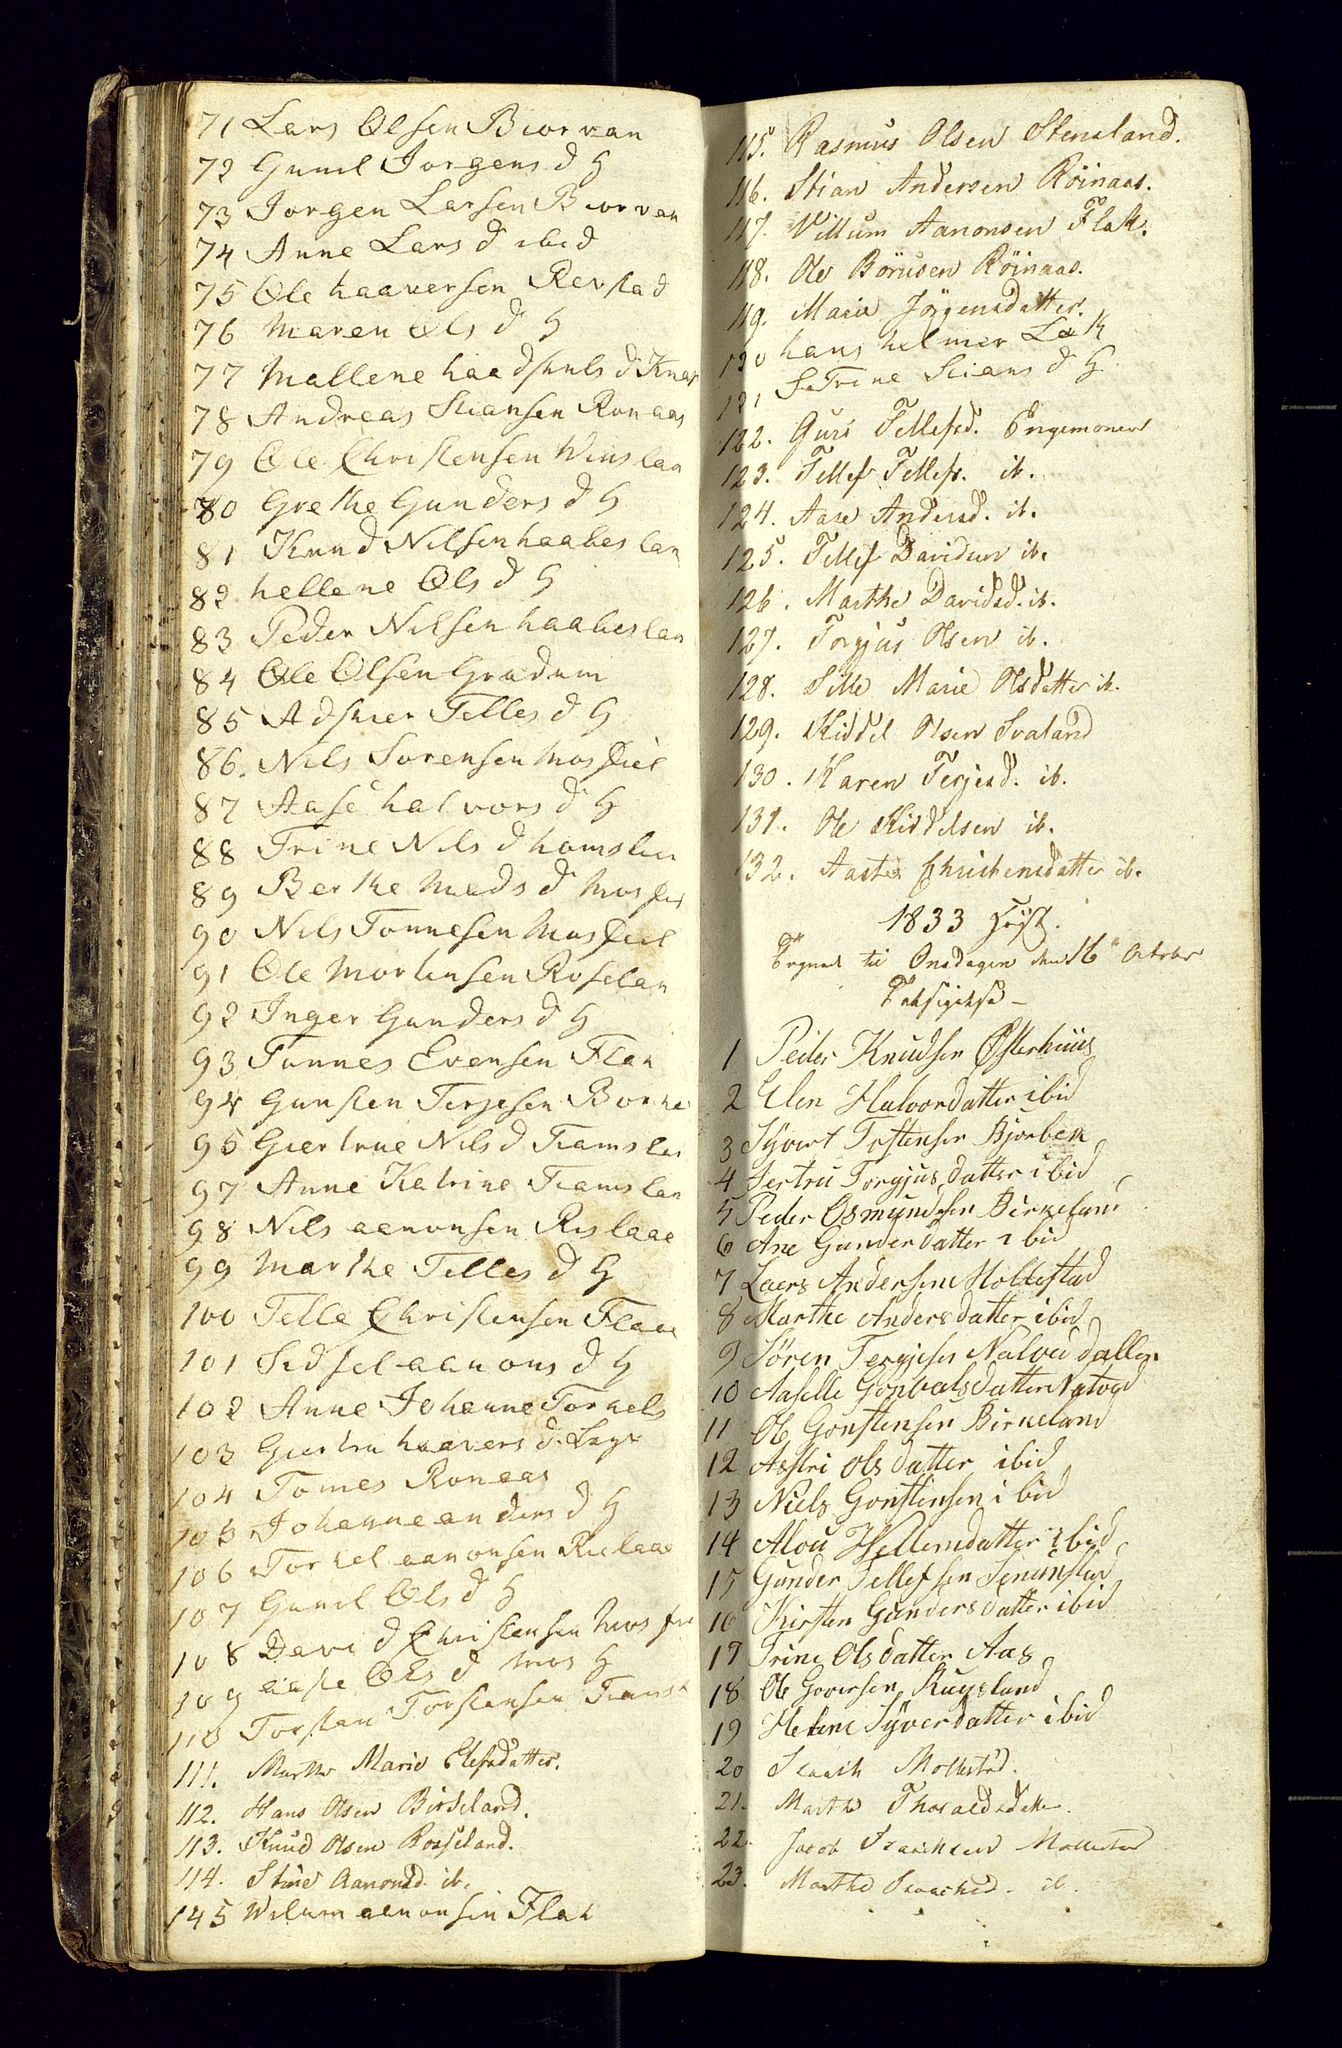 71 Lars Olsen Biorvan
72 Guniel Jorgens d H
73 Jorgen Larsen Biorvan
74 Anne Lars d ibid
75 Ole haaversen Revstad
76 Maren Ols d H
77 Mallene haadskuls d Knap
78 Andreas Stiansen Ronaas
79 Ole Christensen Winslan
80 Grethe Gunders d H
81 Knud Nilsen haabeslan
82 hellene Ols d H
83 Peder Nilsen haabeslan
84 Ole Olsen Gradum
85 Adskier Telles d H
86. Nils Sorensen Mosfiel
87 Aase halvors d H
88 Trine Nils d homslan
89 Berthe Mads d Mosfiel
90 Nils Tonnesen Mosfiel
91 Ole Mortensen Roselan
92 Inger Gunders d H
93 Tonnes Evensen Flak
94 Gunsten Terjesen Birke
95 Giertrue Nils d Tiamslan
97 Anne Katrine Tiamslan
98 Nils aanonsen Rislaae
99 Marthe Telles d H
100 Telle Christensen Flaae
101 Sidsel aanons d H
102 Anne Johanne Torkels
103 Giertru haavers d
104 Tomes Ronaas
105 Johanne anders d H
106 Torkel aanonsen Rislaae
107 Guniel Ols d H
108 David Christensen Mosfie
109 aase Ols d Mos H
110 Torstan Torstensen Tiamsl
111. Marthe Marie Elefsdatter.
112. Hans Olsen Birkeland.
113. Knud Olsen Rosseland.
114. Stine Aanonsd. ib.
145 Wilum aanonsen Flak
115. Rasmus Olsen Stensland.
116. Stian Andersen Röinaas.
117. Villum Aanonsen Flak.
118. Ole Börresen Röinaas.
119. Marie Jörgensdatter.
120 hans helmer Lak
121 Trine Stians d H
122. Guri Tellefsd. Engemoner
123. Tellef Tellefs. ib.
124. Aase Andersd. ib.
125. Tellef Davidsen ib.
126. Marthe Davidsd. ib.
127. Torgjus Olsen ib.
128. Sille Marie Olsdatter ib.
129. Kiddel Olsen Svaland
130. Karen Terjesd. ib.
131. Ole Kiddelsen ib.
132. Aaste Christensdatter ib.
1833 Höst.
Tegnet til Onsdagen den 16de October
Taksigelse
1 Peder Knudsen Østerhuus
2 Elen Halvordatter ibid
3 Syvert Tostensen Bjorbek
4 Jertru Torgjusdatter ibid
5 Peder Osmundsen Birkeland
6 Ane Gunderdatter ibid
7 Laers Andersen Mollestad
8 Marthe Andersdatter ibid
9 Sören Tergjesen Nalvedallen
10 Aaselle datter
11 Ole Gonstensen Birkeland
12 Asstri Olsdatter ibid
13 Niels Gonstensen ibid
14 Alou Wellemdatter ibid
15 Gunder Tellefsen
16 Kirsten Gundersdatter ibid
17 Trine Olsdatter Aas
18 Ole Goversen Rugsland
19 Helene Syverdatter ibid
20 Isaach Mollestad.
21. Marthe Thoraldsdatter.
22. Jacob Isaachsen Mollestad
23. Marthe Isaachsd. ib.